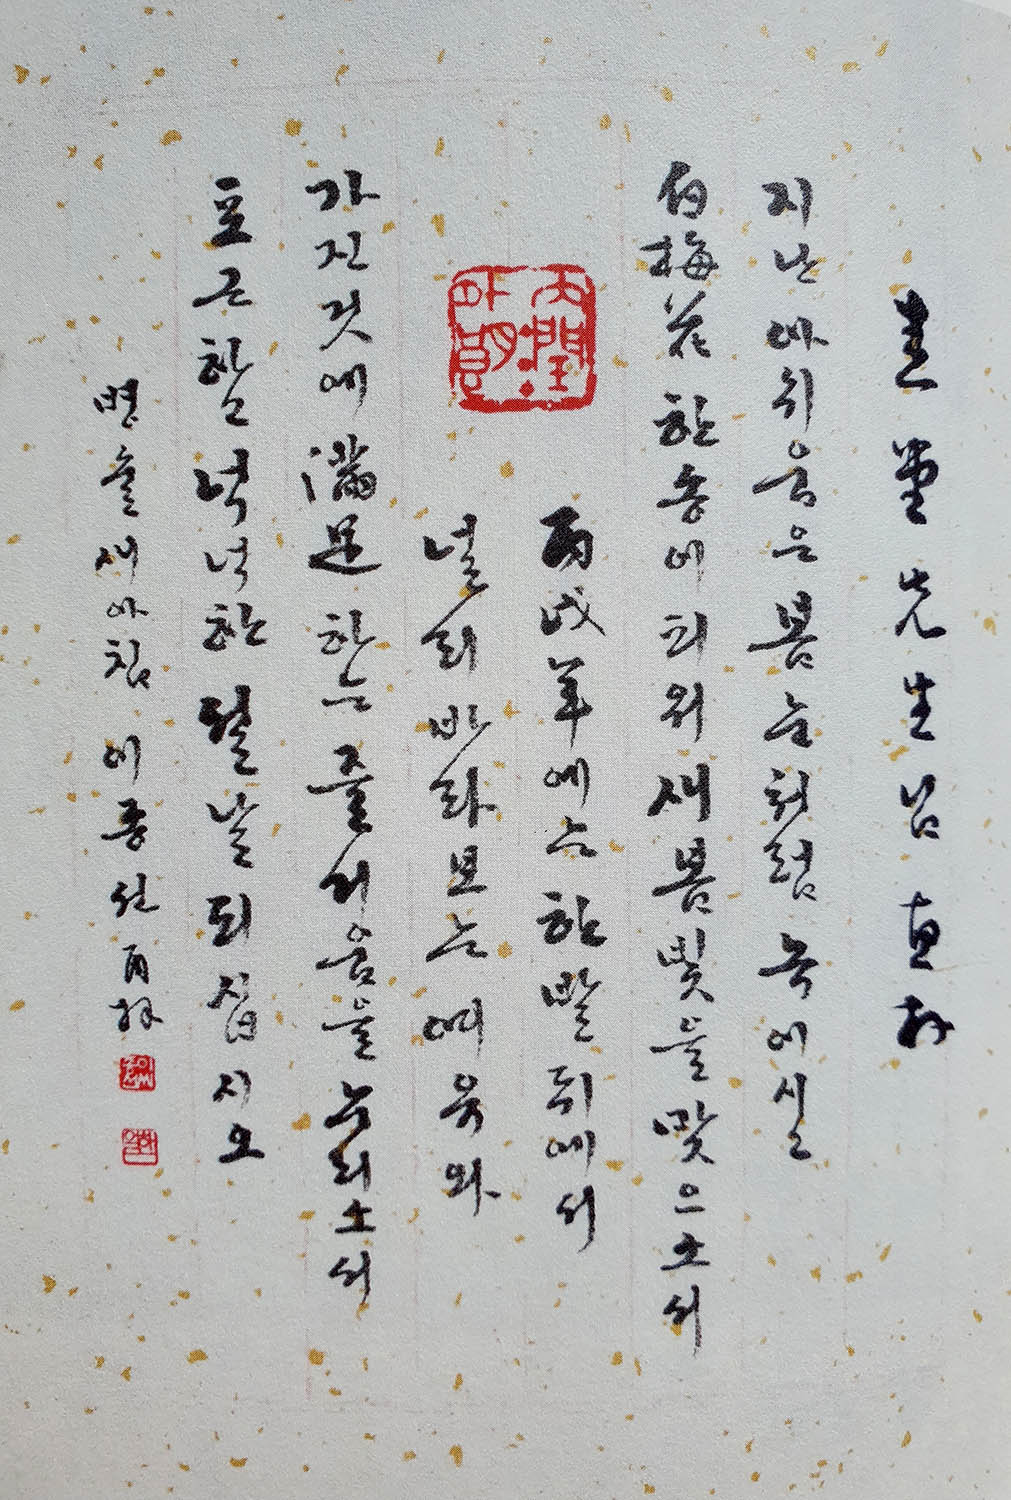 圭堂先生님
지난 아쉬움은 봄눈처럼 녹이실
白梅花 한송이 피워 새봄빛을 맞으소서
丙戌年에는 한발 뒤에서
널리 바라보는 여유와
가진것에 滿足하는 즐거움을 누리소서
포근함 넉넉한 설날 되십시오
병술 새아침 이종선 再拜